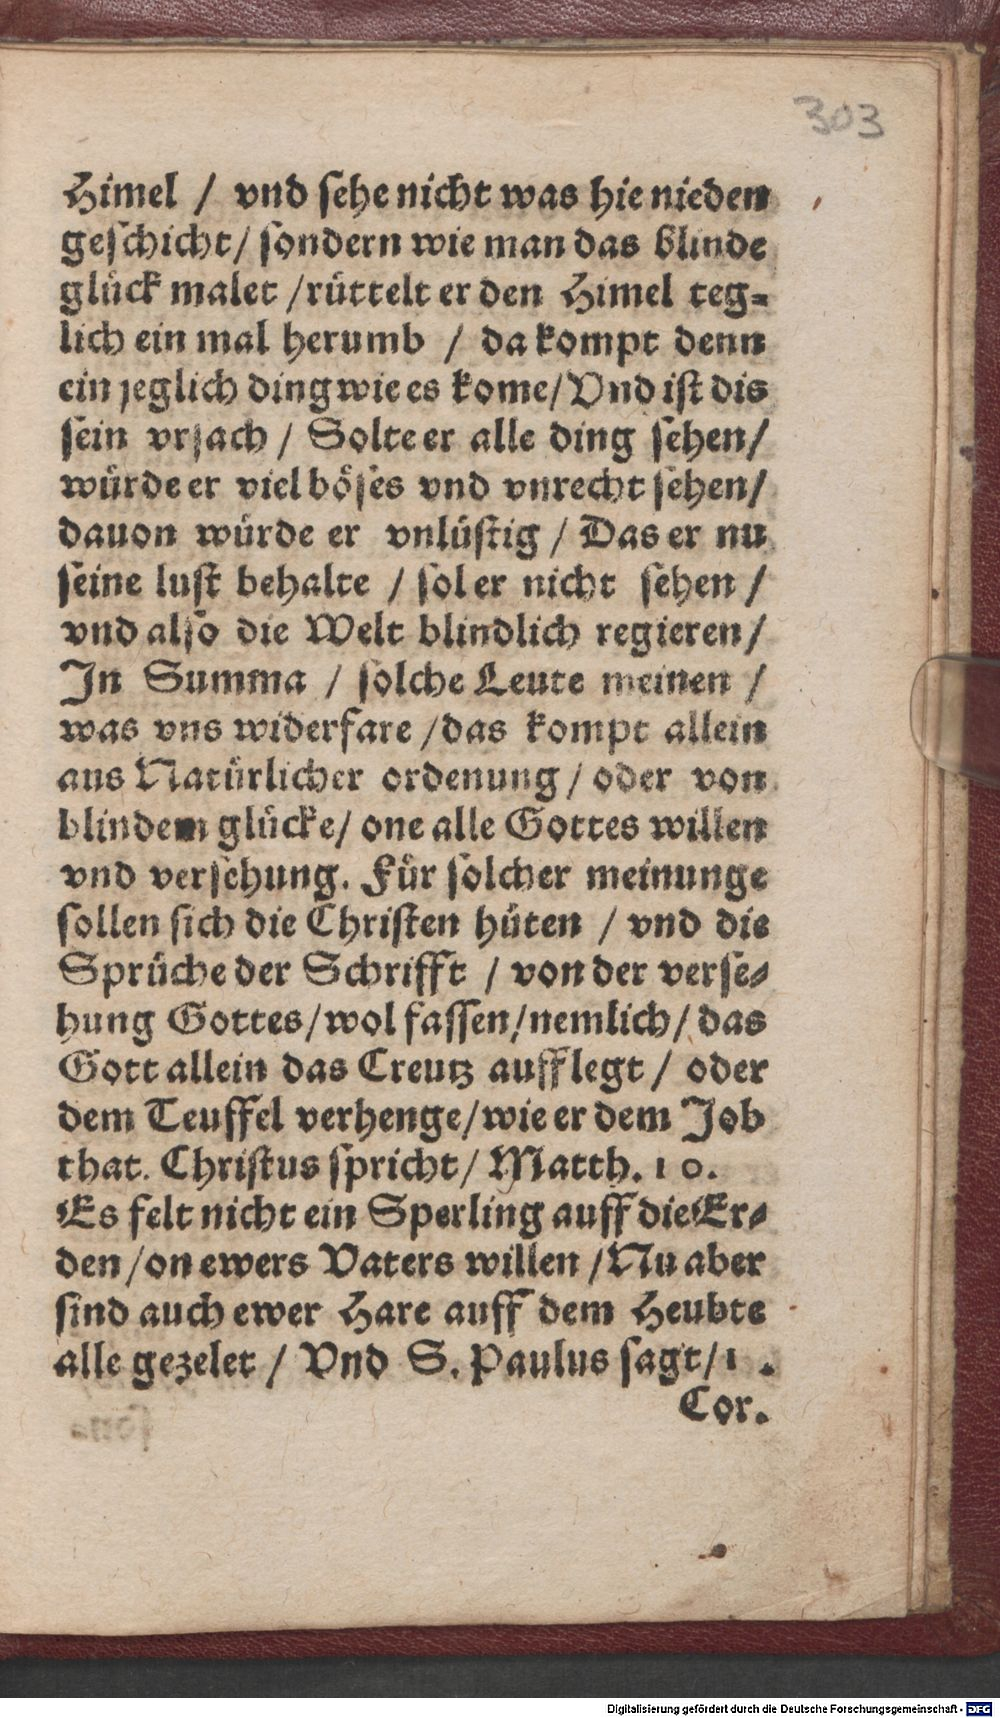 303
Himel / vnd sehe nicht was hie nieden
geschicht / sondern wie man das blinde
glück malet / rüttelt er den Himel teg=
lich ein mal herumb / da kompt denn
ein jeglich ding wie es kome / Vnd ist dis
sein vrsach / Solte er alle ding sehen /
würde er viel böses vnd vnrecht sehen /
dauon würde er vnlüstig / Das er nu
seine lust behalte / sol er nicht sehen /
vnd also die Welt blindlich regieren /
In Summa / solche Leute meinen /
was vns widerfare / das kompt allein
aus Natürlicher ordenung / oder von
blindem glücke / one alle Gottes willen
vnd versehung. Für solcher meinunge
sollen sich die Christen hüten / vnd die
Sprüche der Schrifft / von der verse=
hung Gottes / wol fassen / nemlich / das
Gott allein das Creutz aufflegt / oder
dem Teuffel verhenge / wie er dem Job
that. Christus spricht / Matth. 10.
Es felt nicht ein Sperling auff die Er=
den / on ewers Vaters willen / Nu aber
sind auch ewer Hare auff dem Heubte
alle gezelet / Vnd S. Paulus sagt / 1 .
Cor.
Digitalisierung gefördert durch die Deutsche Forschungsgemeinschaft - DFG